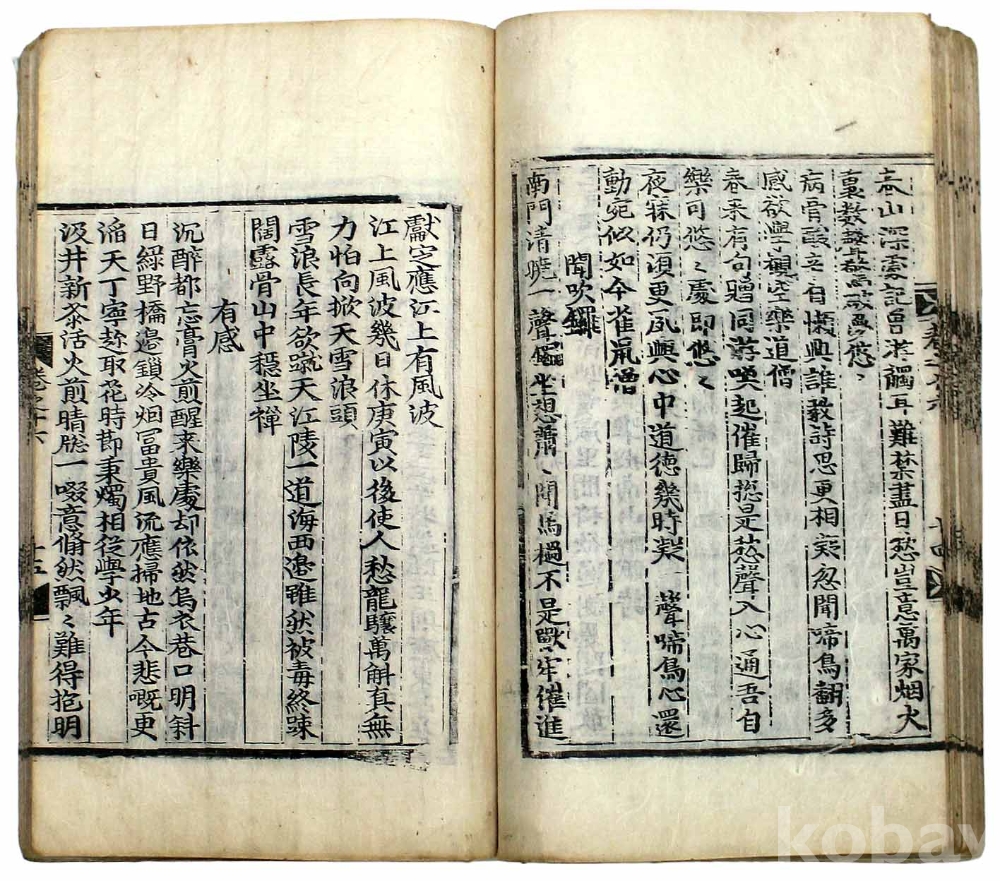 春山深處記曾游觸耳難禁盡日愁豈意萬家烟火
裏數聲
病骨酸辛自懶興誰教詩思更相忽聞啼鳥翻多
感欲學觀空樂道僧
春來有句贈同游喚起催歸摠是愁聲入心通吾自
樂可愁〻處即悠〻
夜寐仍須更夙興心中道德幾時凝一聲啼鳥心還
動宛似如今雀鼠僧
聞吹鑼
南門清曉一聲鑼坐想蕭〻開馬檛不是牢催進
獻定應江上有風波
江上風波幾日休庚寅以後使人愁龍驤萬斛真無
力怕向掀天雪浪頭
雪浪長年欲蹴天江陵一道海西邊雖然被毒終踈
闊露骨山中穩坐禪
有感
沉醉都忘膏火煎醒來樂處却依然烏衣巷口明斜
日綠野橋邊鎖冷烟冨貴風流應掃地古今悲嘅更
滔天丁寧趂取花時節秉燭相從學少年
汲井新茶活火煎晴牕一啜意翛然飄〻難得抱明
卷之六
十五
卷之六
十四
kobay